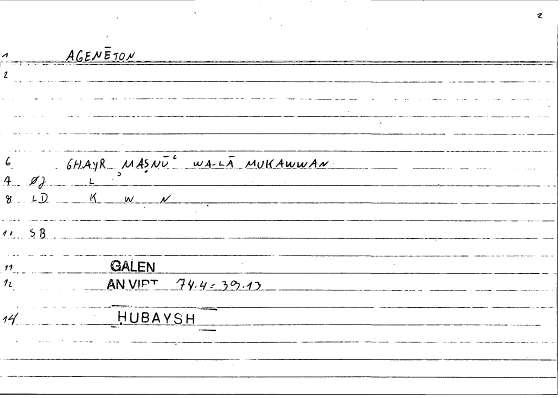 2
1 AGENĒTON
2
6 GHAYR MAṢNŪʿ WA-LĀ MUKAWWAN
7 L
8 LD K W N
10 SB
11 GALEN
12 AN VIRT 74.4 = 39.13
14 ḤUBAYSH